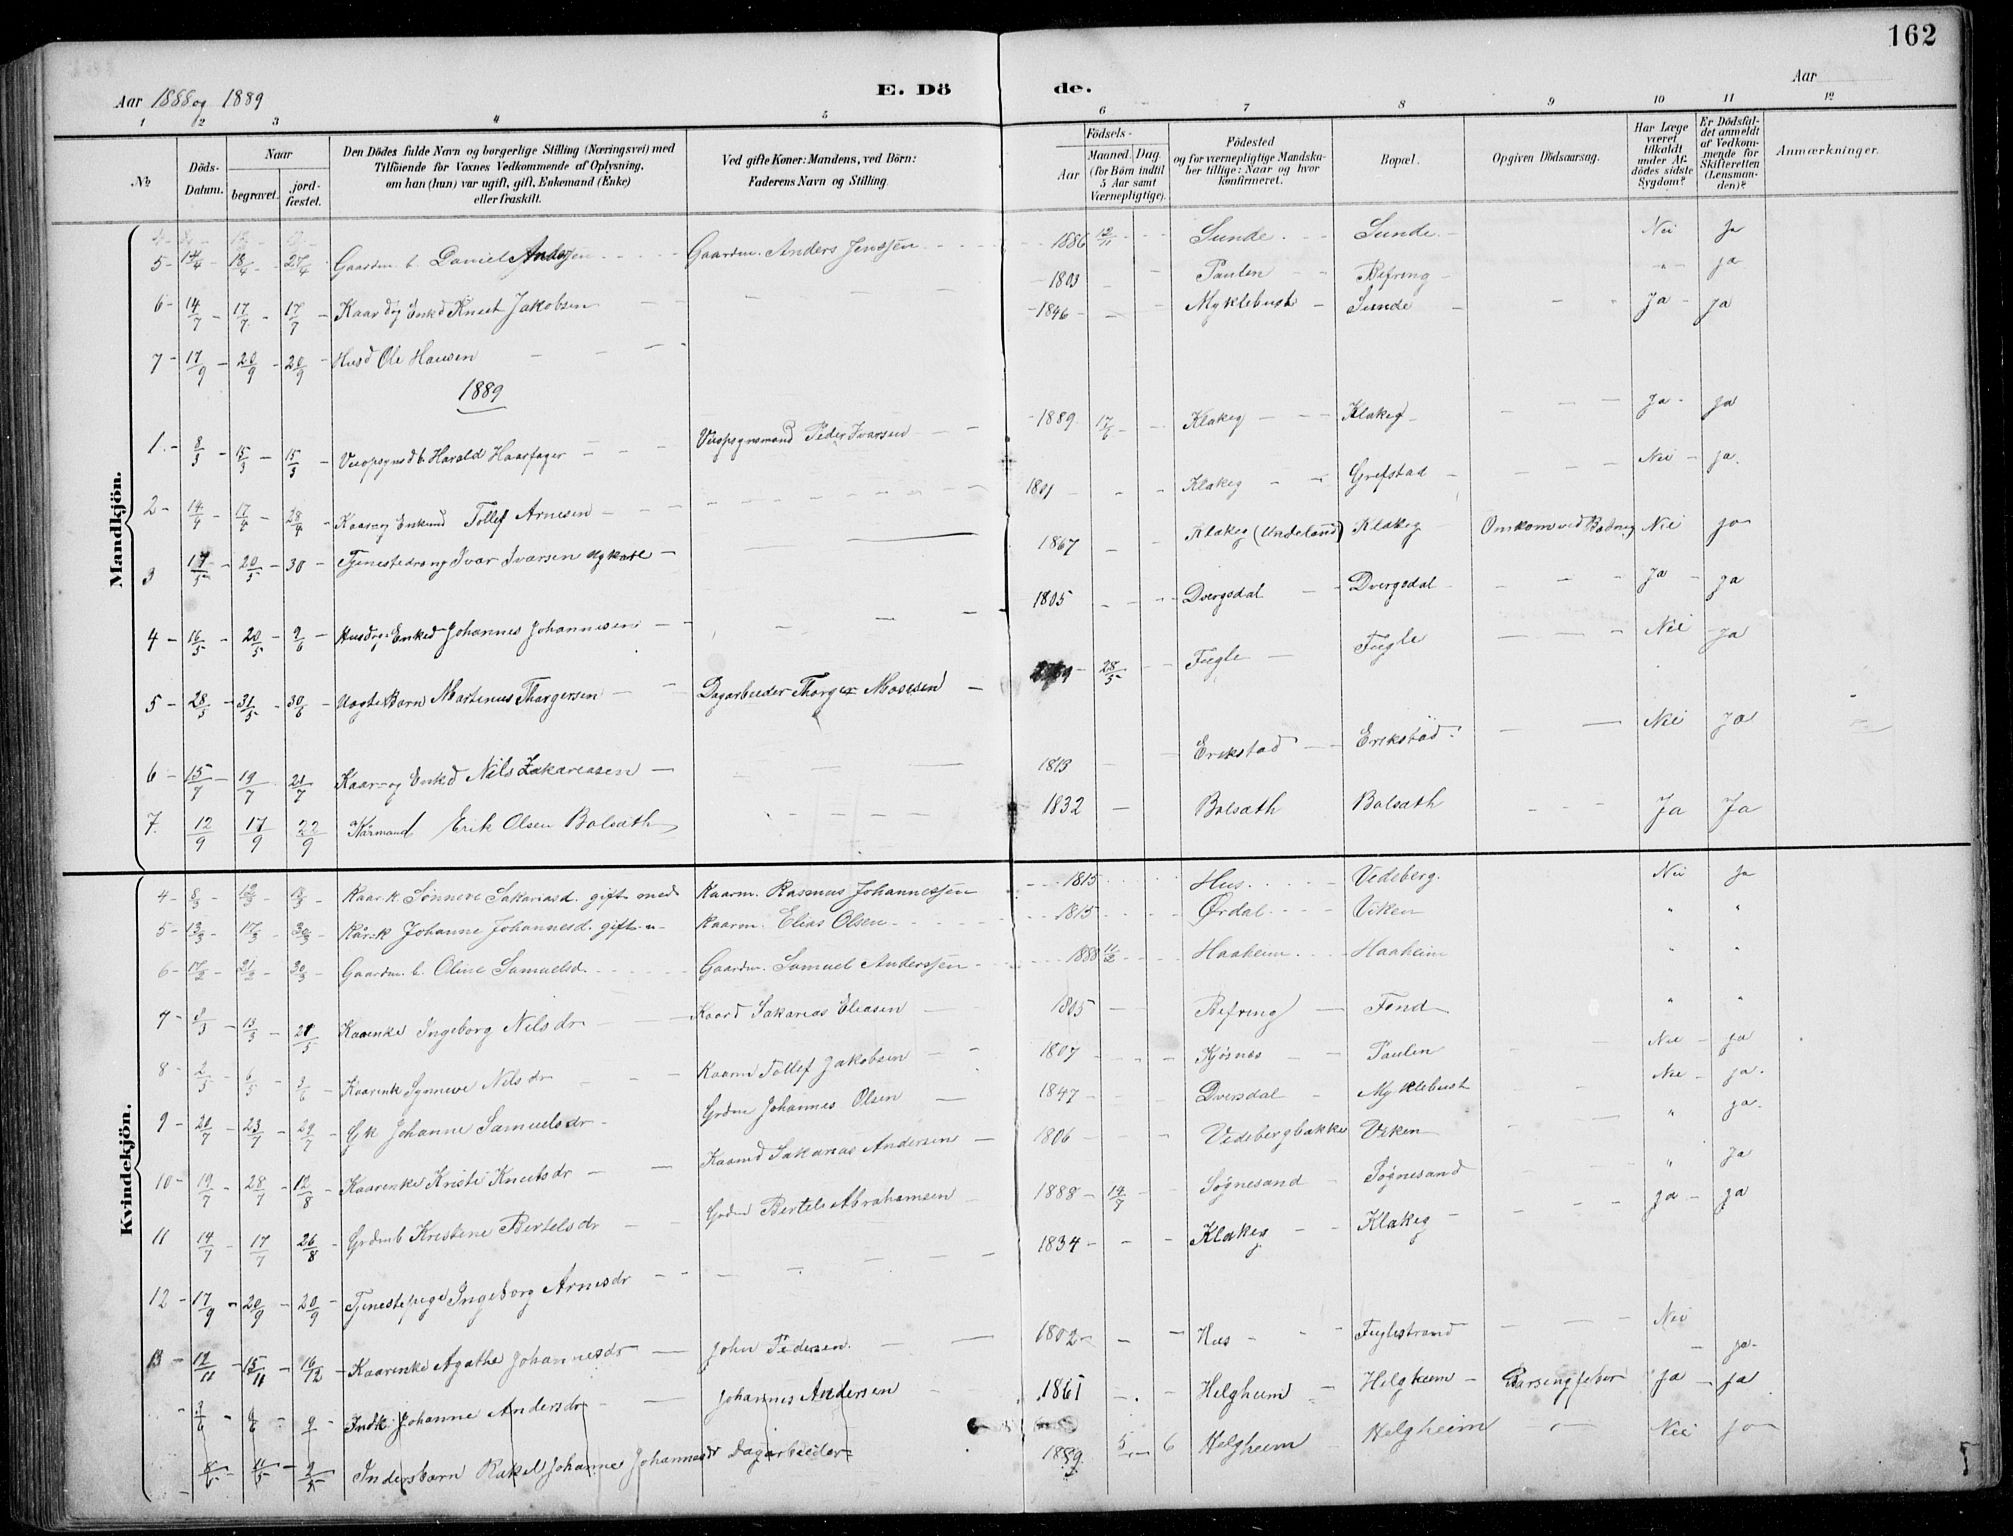 162
Aar 1888 og 1889
E. Dö de.
Aar
1 2 3 4 5 6 7 8 9 10 11 12
No
Döds-Datum.
Naar
begravet. jord-fæstet.
Den Dödes fulde Navn og borgerlige Stilling (Næringsvei) med Tilföiende for Voxnes Vedkommende af Oplysning, om han (hun) var ugift, gift, Enkemand (Enke) eller fraskilt.
Ved gifte Koner: Mandens, ved Börn: Faderens Navn og Stilling.
Födsels-
Aar Maaned. Dag. (for Börn indtil 5 Aar samt Værnepligtige).
Födested og for værnepligtige Mandskaber tillige: Naar og hvor konfirmeret.
Bopæl.
Opgiven Dödsaarsag.
Har Læge været tilkaldt under Afdödes sidste Sygdom?
Er Dödsfaldet anmeldt af Vedkommende for Skifteretten (Lensmanden)?
Anmærkninger.
Mandkjön.
5 - 14/4 - 18/4 - 27/4 Gaardm. b. Daniel Andersen Gaardm. Anders Jenssen 1886 12/11 Sunde Sunde Nei Ja
6 - 14/7 - 17/7 - 17/7 - Kaard og Enkd Knut Jakobsen 1803 Paulen Befring " Ja
7 - 17/9 - 20/9 - 20/9 - Husd Ole Hansen 1846 Myklebust Sunde Ja Ja
1889
1 - 8/3 - 15/3 - 15/3 Harald Haarfager Peder Ivarsen 1889 17/6 Klakeg Klakeg Ja Ja
2 - 14/4 - 17/4 - 28/4 - Tollef Arnesen 1801 Klakeg Grefstad Nei Ja
3 17/5 - 20/5 - 30 - Tjenestedreng Ivar Ivarsen Ugkarl 1867 Klakeg (Undeland) Klakeg Omkom ved Nei Ja
4 - 16/5 - 20/5 - 9/6 - Husd og Enkd Johannes Johannesen 1805 Dvergsdal Dvergsdal Ja Ja
5 - 28/5 - 31/5 - 30/6 - Uægte Barn Martinus Thorgersen Dagarbeider Thorger Mosesen 28/5 Fugle Fugle Nei Ja
6 - 15/7 - 19/7 21/7 Kaar og Enkd Nils Zakariasen 1813 Erikstad Erikstad Nei Ja
7. 12/9 17/9 22/9 Kårmand Erik Olsen Bolsæth 1832 Bolsæth Bolsæth Ja Ja
Kvindekjön.
4 - 8/3 - Kaark. Sönneve Sakariasd. gift med Kaarm. Rasmus Johannessen 1815 Hus Vedeberg. Nei Ja
5 - 13/3 - 17/3 - 30/3 - Kår.k Johanne Johannesd. gift " Kaarm. Elias Olsen 1815 Ørdal Viken " "
6 - 17/2 - 21/2 - 30/3 - Gaardm. b. Oline Samuelsd. Gaardm. Samuel Anderssen 1888 11/2 Haaheim Haaheim " "
7 - 8/3 - 13/3 - 21/5 Kaarenke Ingeborg Nilsdr Kaard Sakarias Eliasen 1805 Befring Fond " "
8 - 2/5 - 6/5 - 3/6 - Kaarenk Synneve Nilsdr Kaarm Tollef Jakobsen 1807 Kjøsnes Paulen Nei Ja
9 - 20/7 - 23/7 - 29/7 - Gk Johanne Samuelsdr Grdm Johannes Olsen 1847 Dversdal Myklebust Nei Ja.
10 - 19/7 - 28/7 12/8 - Kaarenke Kristi Knutsdr Kaarmd Sakarias Andersen 1806 Vedebergbakke Viken " Ja.
11 14/7 - 17/7 26/8 Grdmb Kristine Bertelsdr Grdm Bertel Abrahamsen 1888 14/7 Sognesand Sognesand " Ja
12 - 17/9 - 20/9 - 20/9 - Tjenestepige Ingeborg Arnesdr 1834 Klakeg Klakeg Ja Ja
13 - 12/11 - 15/11 - 16/12 - Kaarenke Agathe Johannesdr John Pedersen 1802 Hus Fuglestrand Nei Ja.
3/6 - 6/6 - 9 - Indk Johanne Andersdr Johannes Andersen 1861 Helgheim Helgheim Barselfeber Ja Ja
Indersbarn Rakel Johanne Johannesdr Dagarbeider 1889 5 6 Helgheim Helgheim Nei Ja